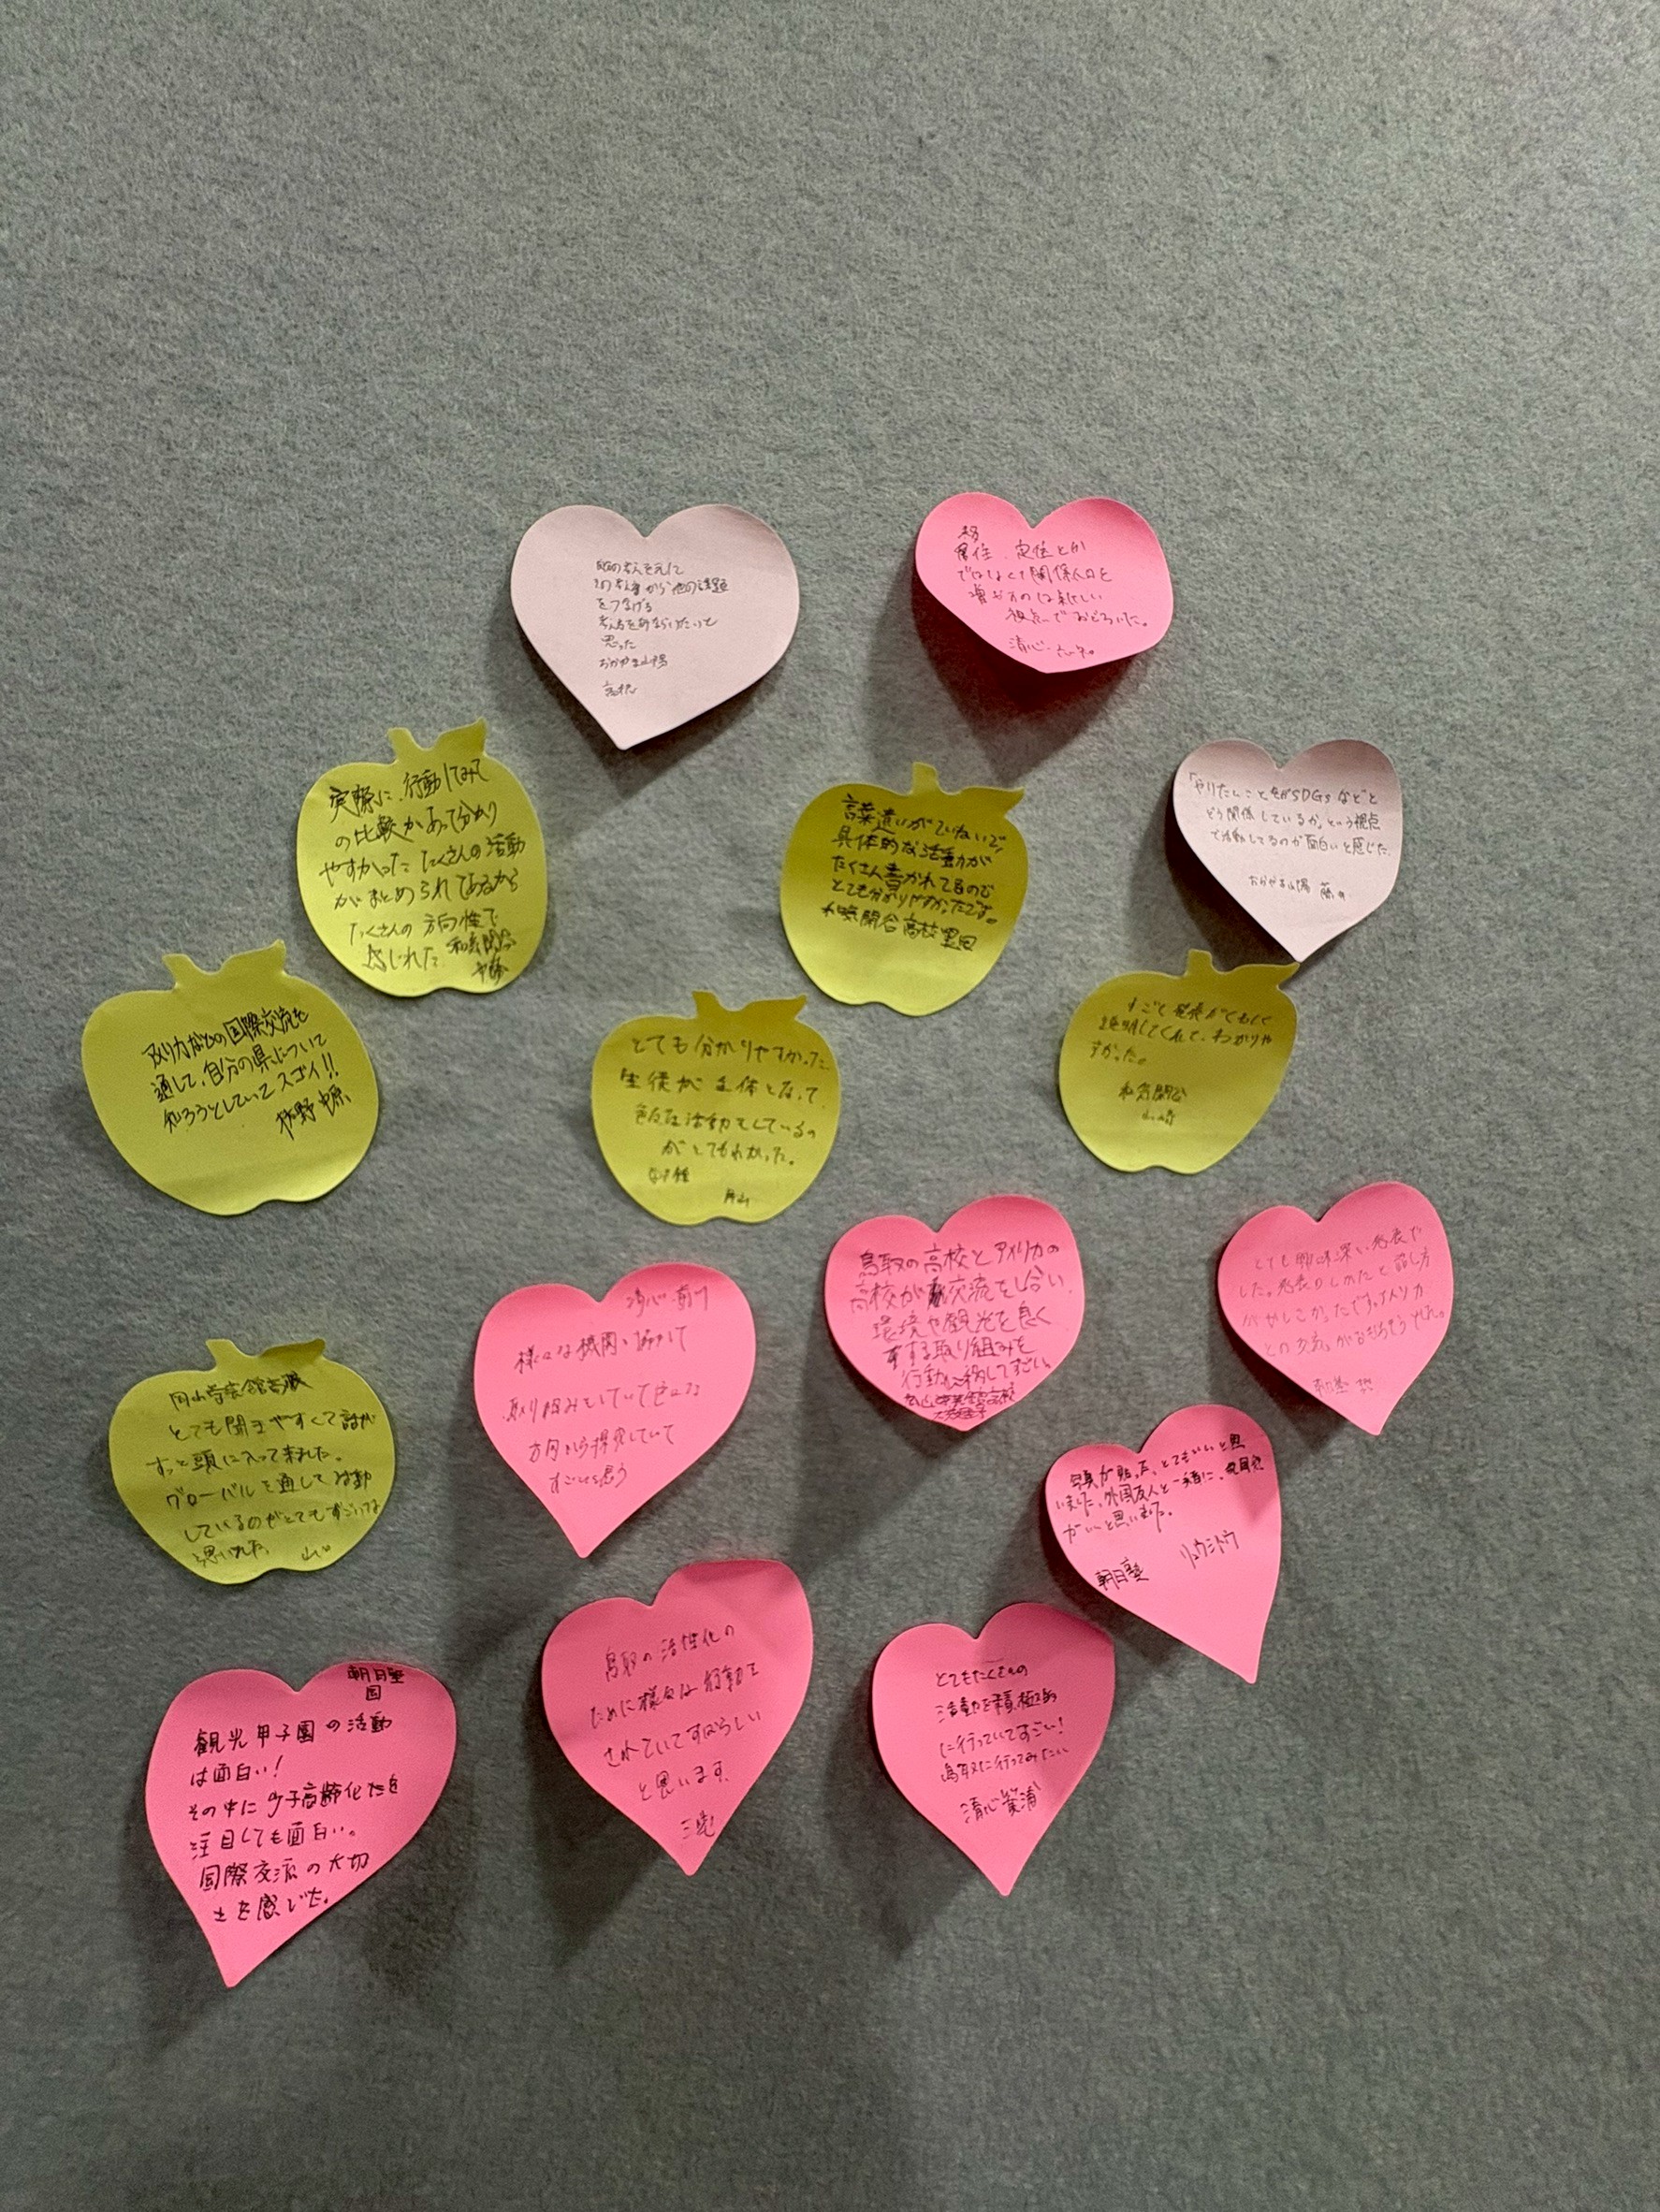 を元に
から他の課題
をつなげる
思った
おかやま山陽
移
住、定住とか
ではなくて関係人口を
増やすのは新しい
視点でおどろいた。
清心
実際に、行動してみて
の比較があって分かり
やすかった たくさんの活動
がまとめられてあるから
たくさんの方向性で
感じれた 和気閑谷
言葉遣いがていねいで、
具体的な活動が
たくさん書かれてるので
とても分かりやすかったです。
和気閑谷高校
「やりたいことをがSDGsなどと
どう関係しているか」という視点
で活動してるのが面白いと感じた。
おかやま山陽
アメリカなどの国際交流を
通して、自分の県について
知ろうとしていてスゴイ!!
とても分かりやすかった
生徒が主体となって
色々な活動をしているの
がとてもわかった。
すごく発表がくわしく
説明してくれて、わかりや
すかった。
和気閑谷
山崎
鳥取の高校とアメリカの
高校が交流をし合い
環境や観光を良く
する取り組みを
行動に移してすごい。
とても興味深い発表で
した。発表のしかたと話し方
がかしこかったです。アメリカ
との
清心
様々な機関と協力して
取り組みをしていて色々な
方向から探究していて
すごいと思う
岡山学芸館
とても聞きやすくて話が
すっと頭に入って来ました。
グローバルを通して活動
しているのがとてもすごいな
と思いました。
写真が貼った、とてもいいと思
いました。外国友人と一緒に、
がいいと思いました。
リュウシトウ
朝日塾
鳥取の活性化の
ために様々な行動を
されていてすばらしい
と思います。
三宅
とてもたくさんの
活動を積極的
に行っていてすごい!
鳥取に行ってみたい
清心 箕浦
朝日塾
国
観光甲子園の活動
は面白い!
その中に少子高齢化を
注目しても面白い。
国際交流の大切
さを感じた。